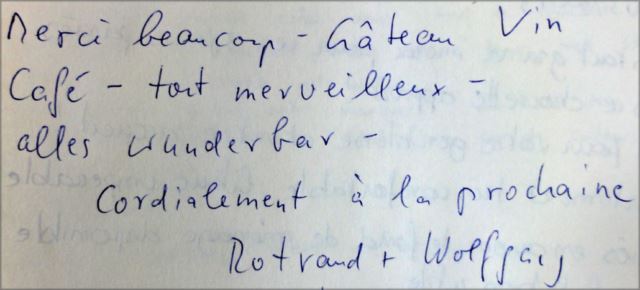 Merci beaucoup - Château Vin
Café - tout merveilleux -
alles wunderbar -
Cordialement à la prochaine
Rotraud + Wolfgang